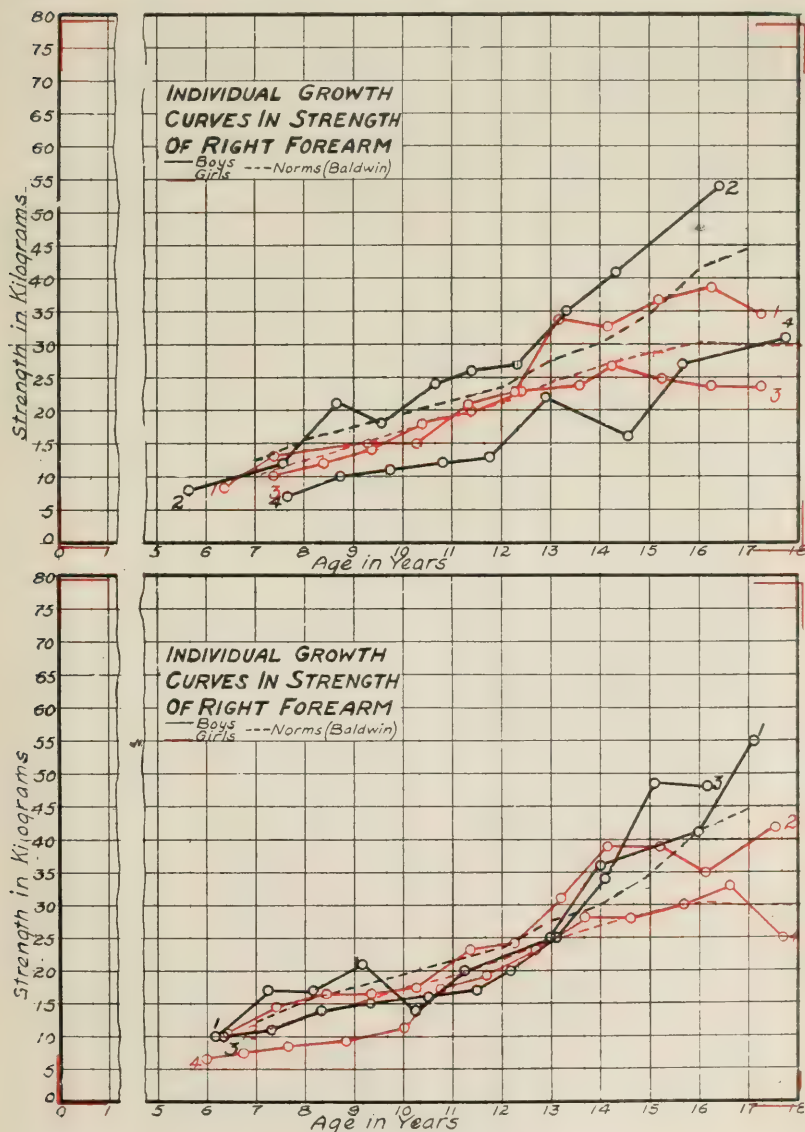 80
75
70
65
60
55
50
45
40
35
30
25
20
15
10
5
0
Strength in Kilograms
INDIVIDUAL GROWTH
CURVES IN STRENGTH
OF RIGHT FOREARM
Boys
Girls
Norms (Baldwin)
2
1
4
3
2
1
3
4
0 1 5 6 7 8 9 10 11 12 13 14 15 16 17 18
Age in Years
80
75
70
65
60
55
50
45
40
35
30
25
20
15
10
5
0
Strength in Kilograms
INDIVIDUAL GROWTH
CURVES IN STRENGTH
OF RIGHT FOREARM
Boys
Girls
Norms (Baldwin)
3
2
4
1
3
4
0 1 5 6 7 8 9 10 11 12 13 14 15 16 17 18
Age in Years